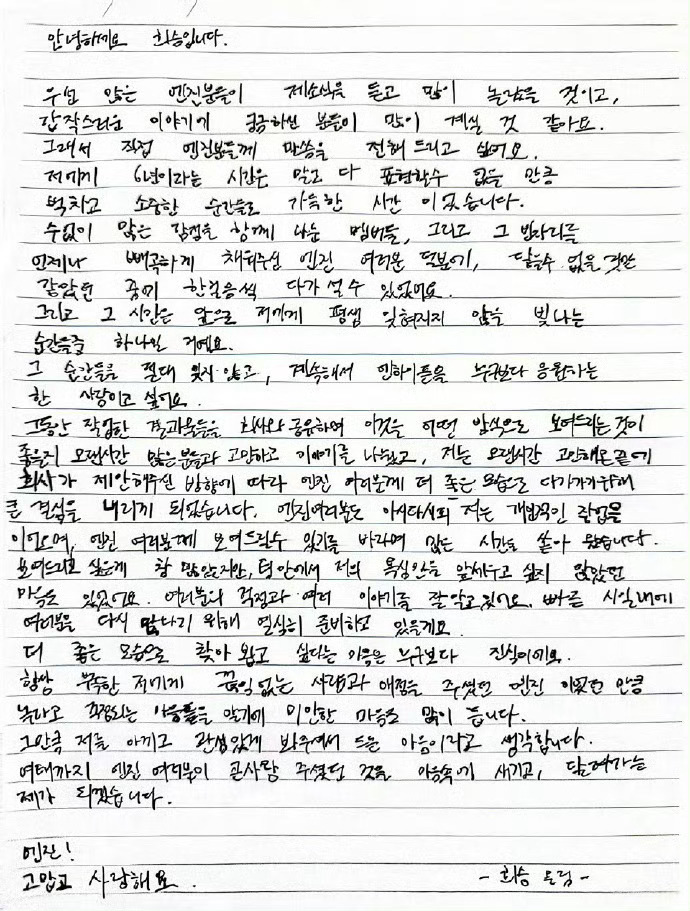 안녕하세요 희승입니다.
우선 많은 엔진분들이 제소식을 듣고 많이 놀랐을 것이고,
갑작스러운 이야기에 궁금하신 분들이 많이 계실 것 같아요.
그래서 직접 엔진분들께 말씀을 전해 드리고 싶어요.
저에게 6년이라는 시간은 말로 다 표현할수 없을 만큼
벅차고 소중한 순간들로 가득한 시간 이었습니다.
수없이 많은 감정을 함께 나눈 멤버들, 그리고 그 빈자리를
언제나 빼곡하게 채워주신 엔진 여러분 덕분에, 닿을수 없을 것만
같았던 꿈에 한걸음씩 다가 설 수 있었어요.
그리고 그 시간은 앞으로 저에게 평생 잊혀지지 않을 빛나는
순간들중 하나일 거예요.
그 순간들을 절대 잊지 않고, 계속해서 엔하이픈을 누구보다 응원하는
한 사람이고 싶어요.
그동안 작업한 결과물들을 회사와 공유하며 이것을 어떤 방식으로 보여드리는 것이
좋을지 오랜시간 많은 분들과 고민하고 이야기를 나눴고, 저는 오랜시간 고민해온 끝에
회사가 제안해주신 방향에 따라 엔진 여러분께 더 좋은 모습으로 다가가기위해
큰 결심을 내리게 되었습니다. 엔진여러분도 아시다시피 저는 개인적인 작업을
이었으며, 엔진 여러분께 보여드릴수 있기를 바라며 많은 시간을 쏟아 왔습니다.
보여드리고 싶은게 참 많았지만, 팀 안에서 저의 욕심만을 앞세우고 싶지 않았던
마음도 있었어요. 여러분의 걱정과 여러 이야기를 잘 알고 있어요. 빠른 시일내에
여러분을 다시 만나기 위해 열심히 준비하고 있을게요.
더 좋은 모습으로 찾아 뵙고 싶다는 마음은 누구보다 진심이에요.
항상 부족한 저에게 끊임없는 사랑과 애정을 주셨던 엔진 이었던 만큼
놀라고 걱정되는 마음들을 알기에 미안한 마음도 많이 듭니다.
그만큼 저를 아끼고 관심있게 봐주셔서 드는 마음이라고 생각합니다.
여태까지 엔진 여러분이 큰사랑 주셨던 것을 마음속에 새기고, 달려가는
제가 되겠습니다.
엔진!
고맙고 사랑해요.
- 희승 드림 -